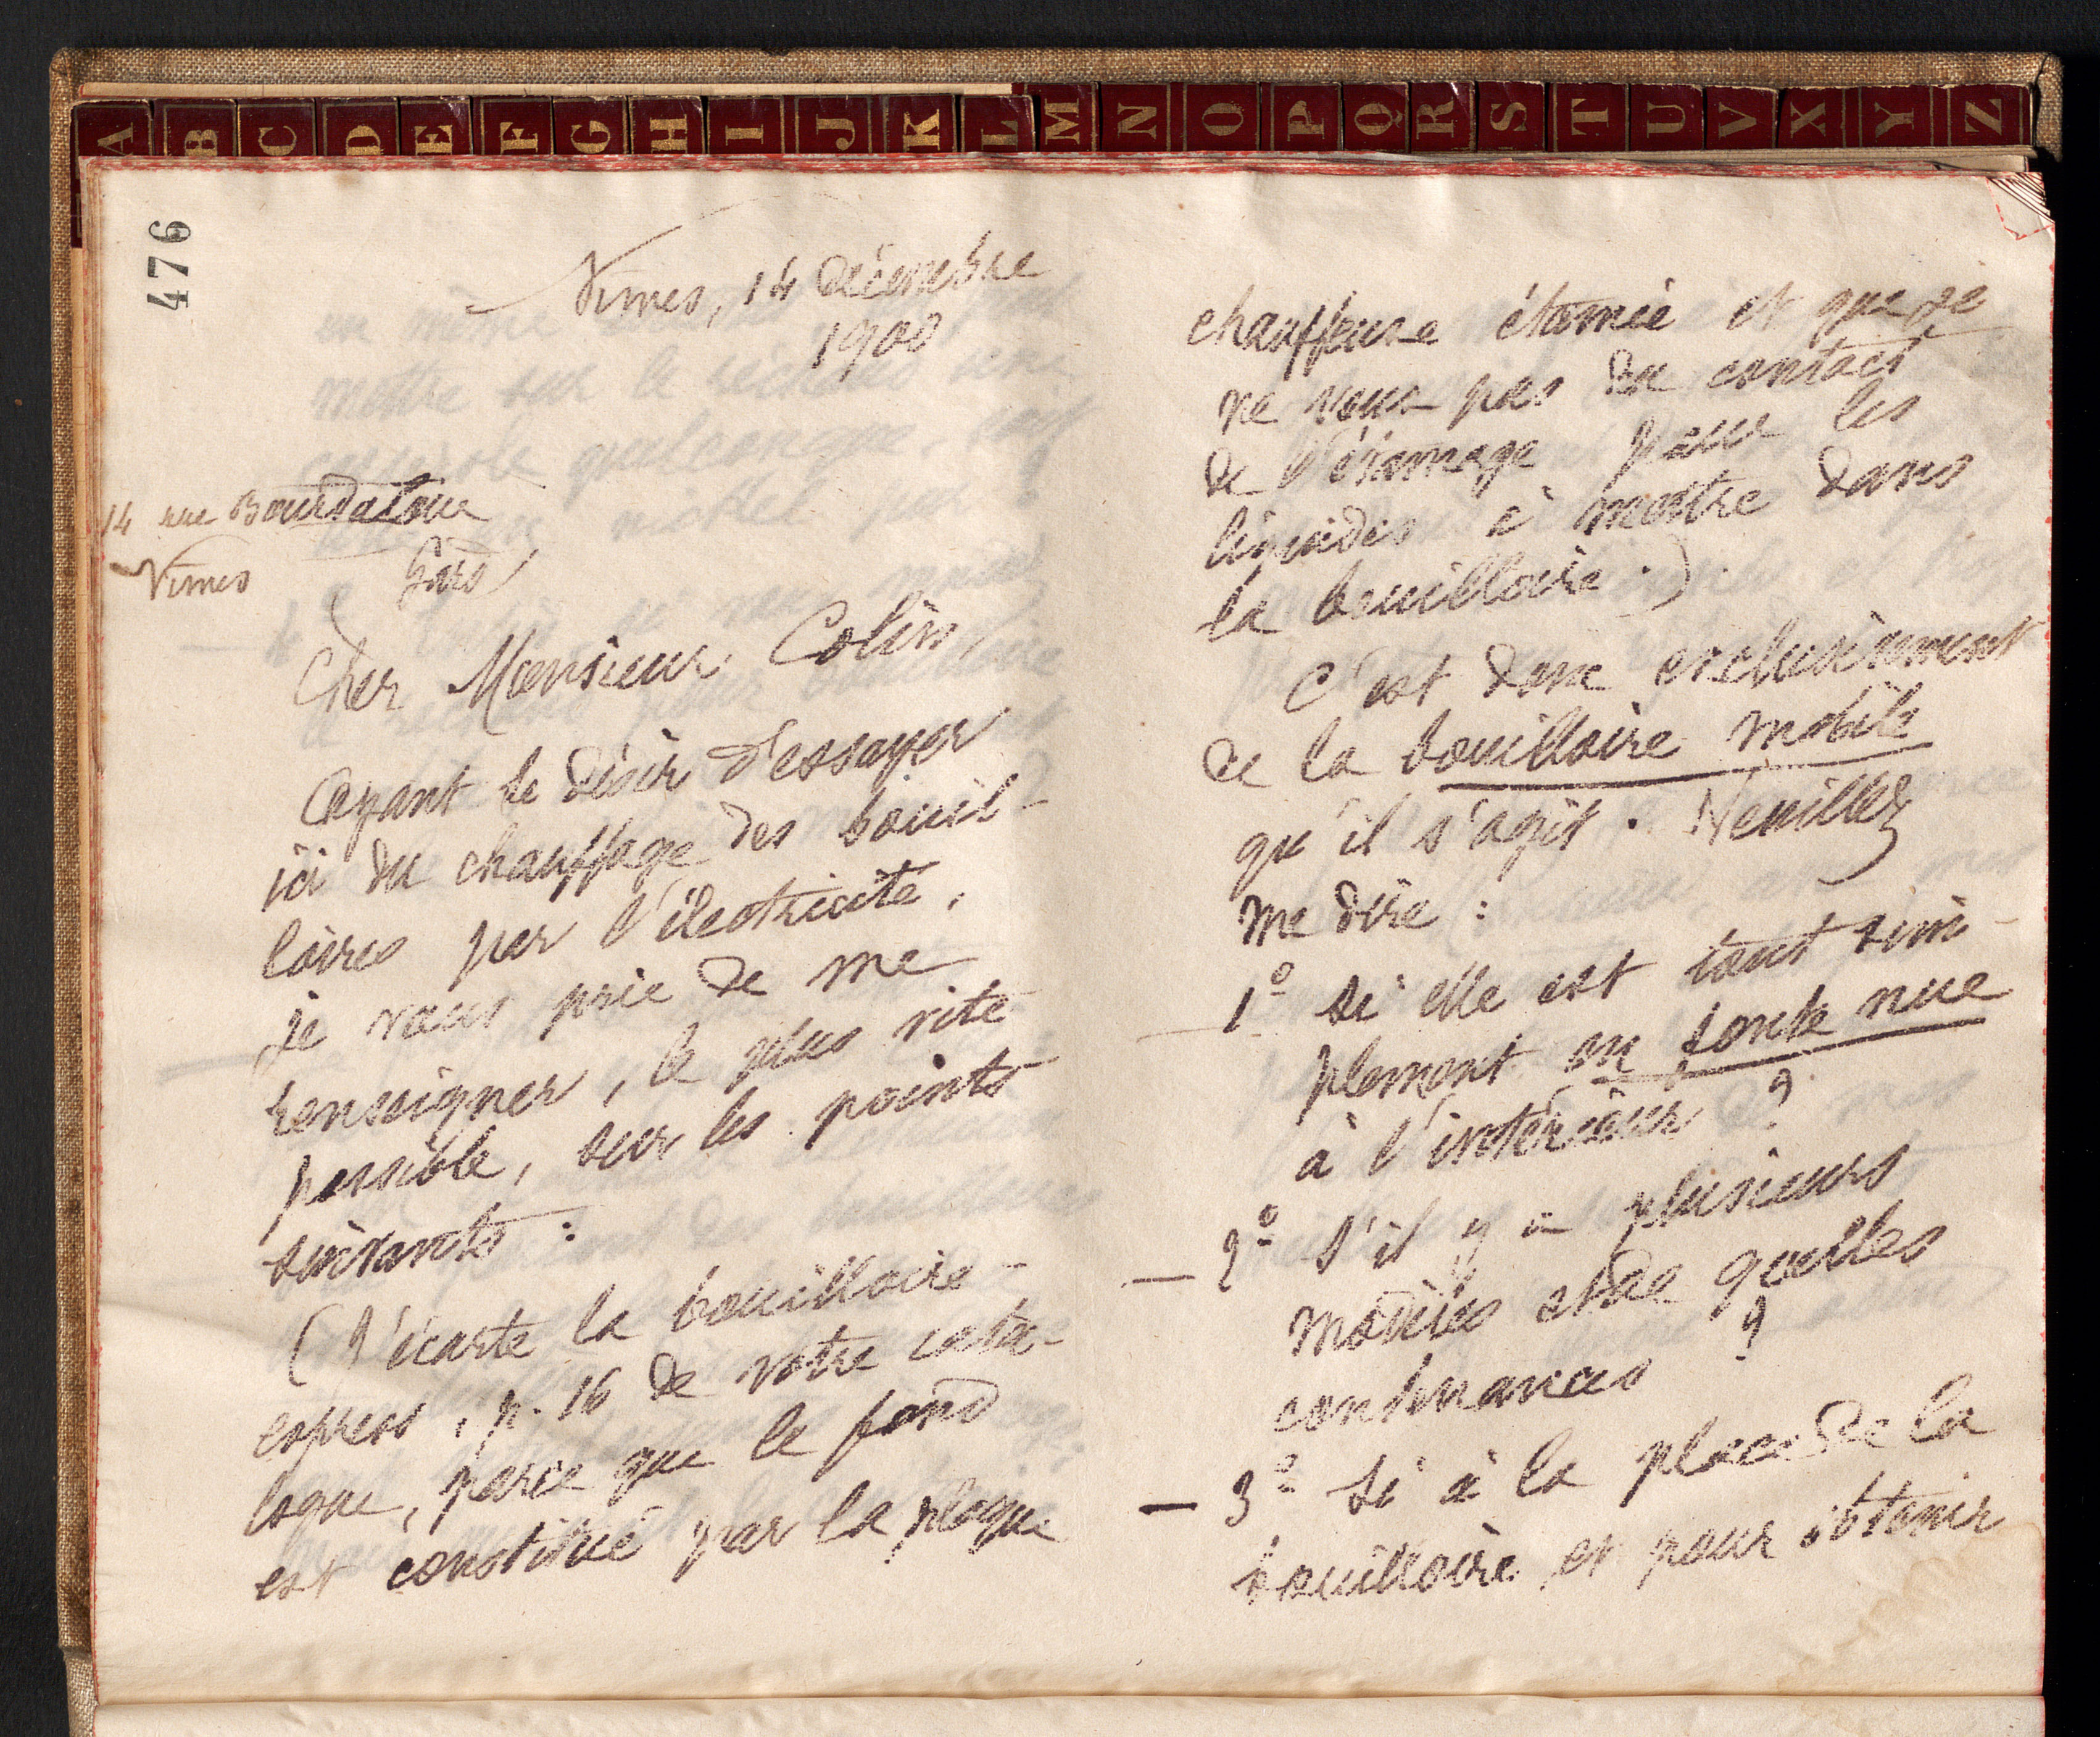 A B C D E F G H I J K L M N O P Q R S T U V X Y Z
476
Nimes, 14 décembre
1900
14 rue Bourdaloue
Nimes Gard
Cher Monsieur Colin,
Ayant le désir d'essayer
ici du chauffage des bouil-
loires par l'électricité,
je vous prie de me
renseigner, le plus vite
possible, sur les points
suivants :
(J'écarte la bouilloire-
express, p. 16 de votre cata-
logue, parce que le fond
est constitué par la plaque
chauffeuse étamée et que je
ne veux pas du contact
de l'étamage pour les
liquides à mettre dans
la bouilloire.)
C'est donc exclusivement
de la bouilloire mobile
qu'il s'agit. Veuillez
me dire :
1º si elle est tout sim-
plement en fonte nue
à l'intérieur ?
— 2º s'il y a plusieurs
modèles et de quelles
contenances ?
— 3º si à la place de la
bouilloire et pour obtenir